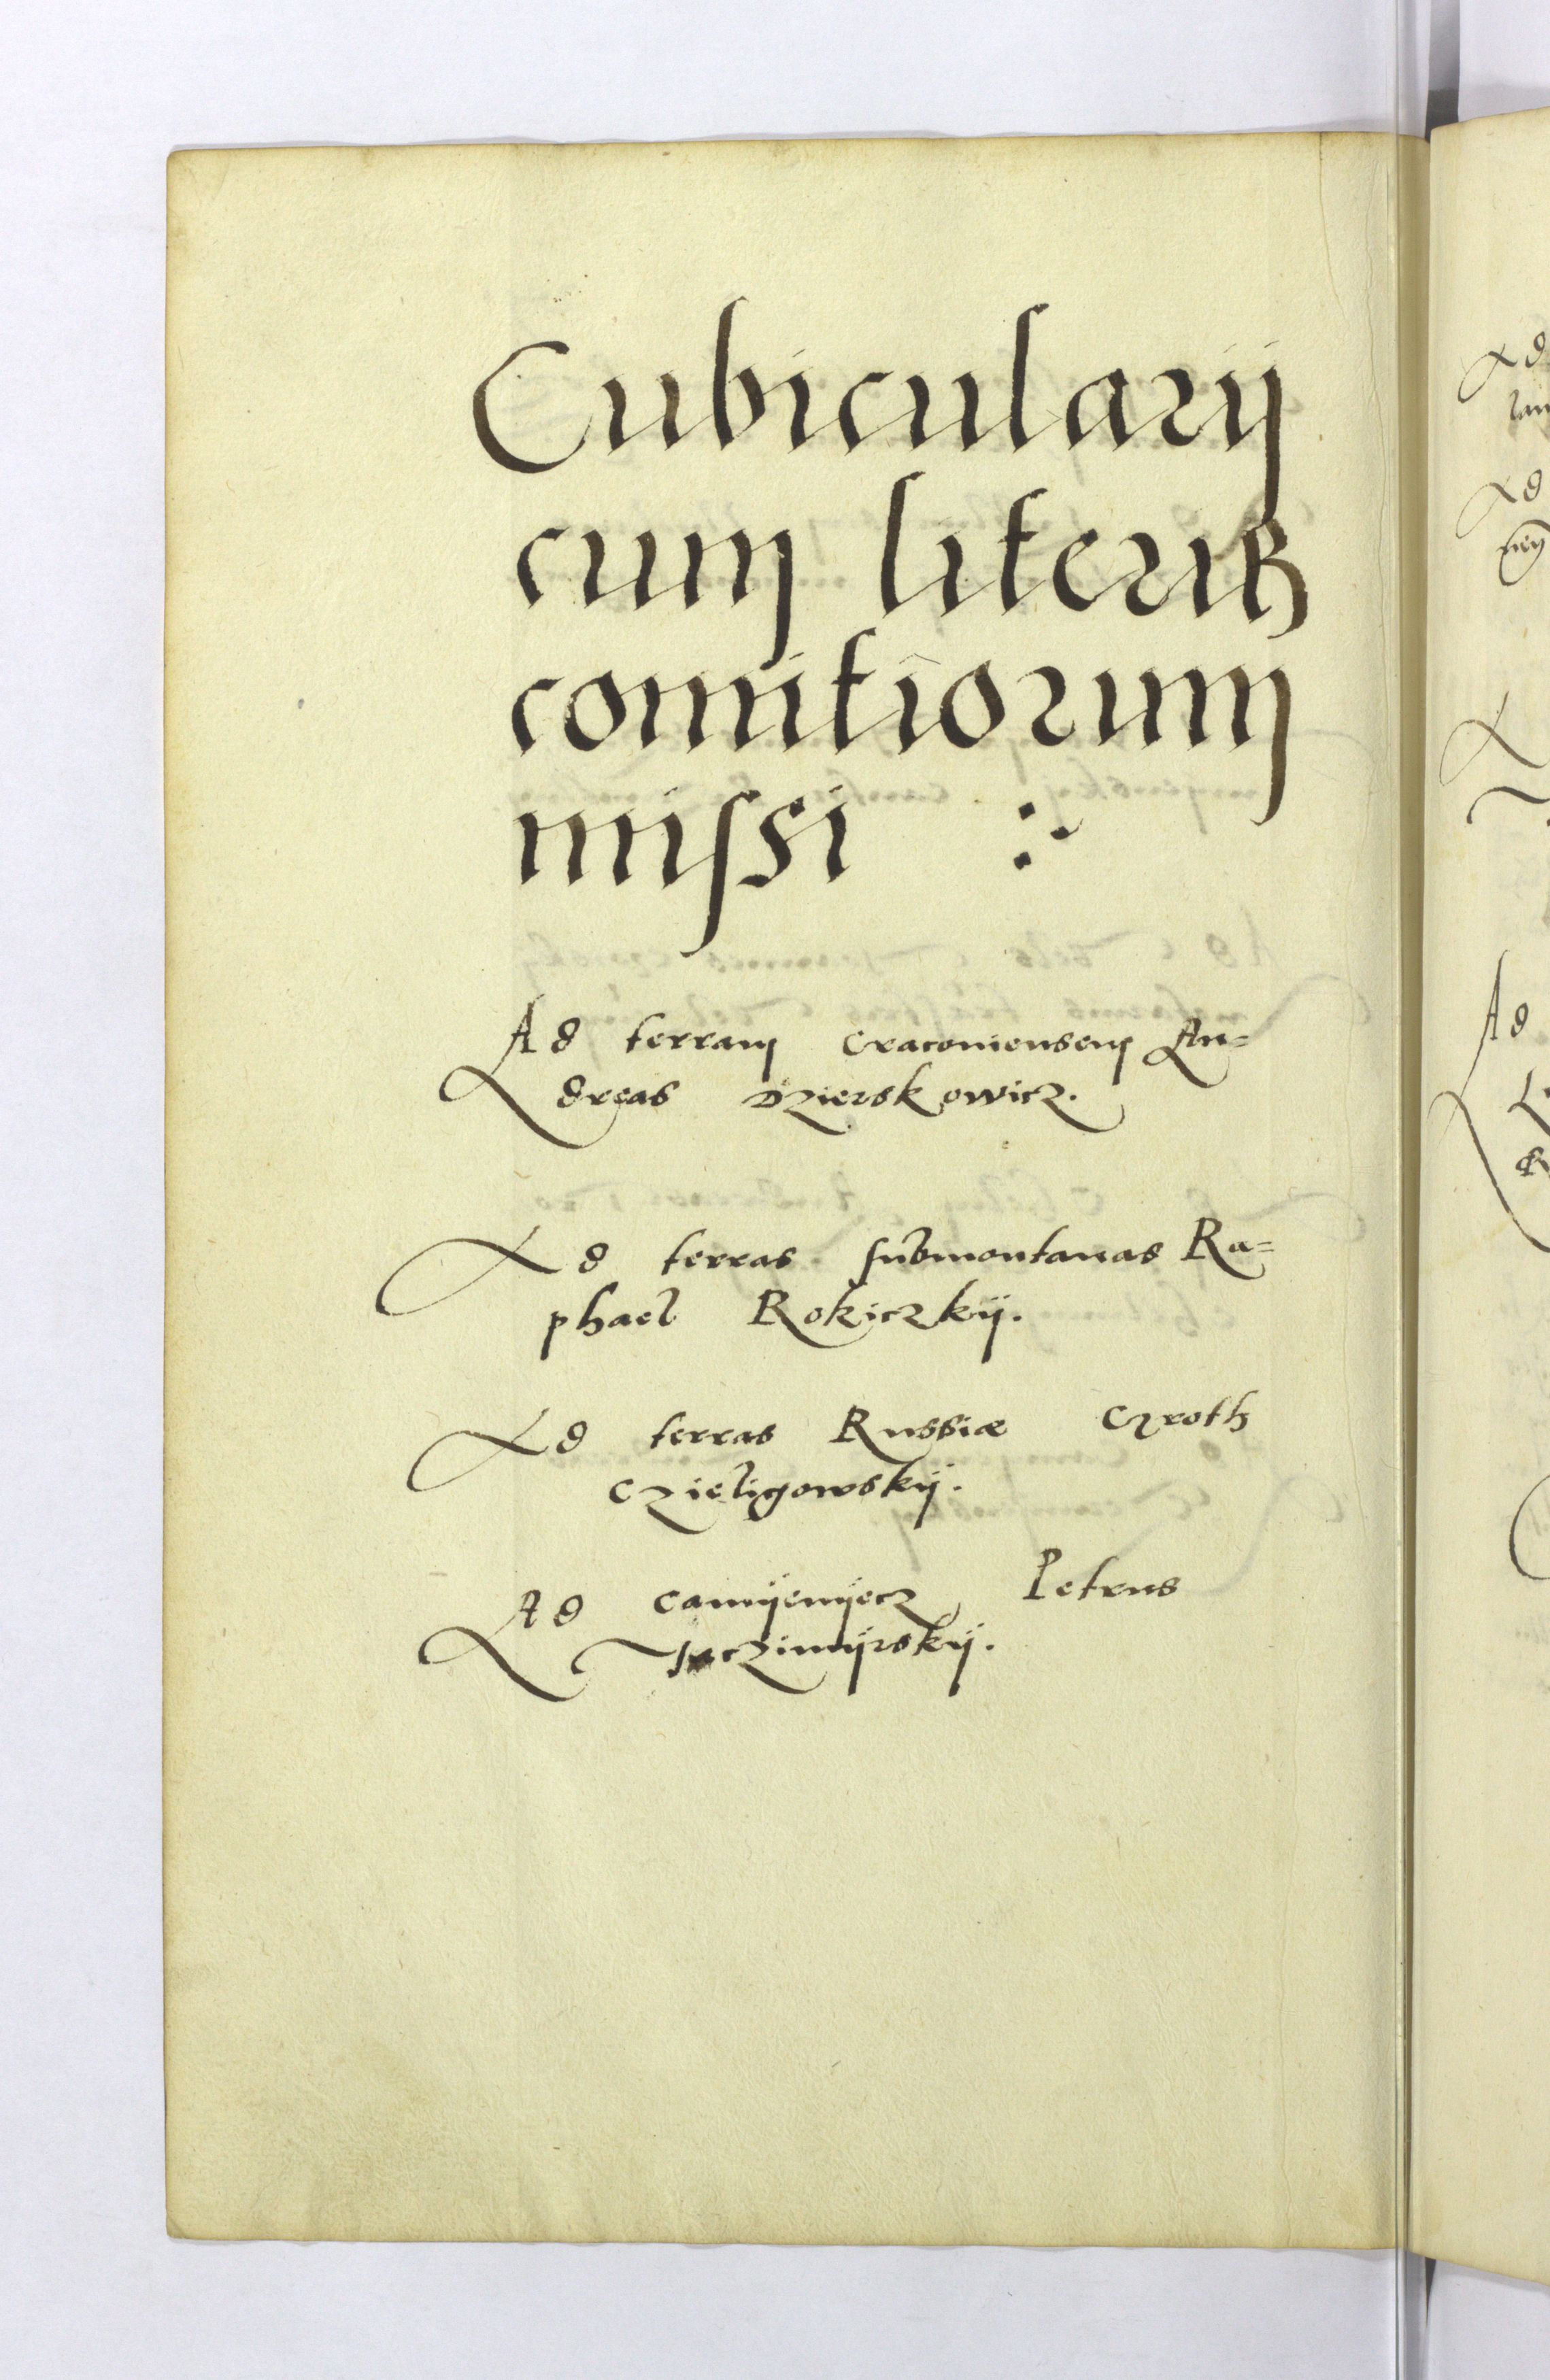 Cubicularij
cum literis
comitiorum
missi
Ad terram Cracoviensem An=
dreas Dzierskowicz.
Ad terras submontanas Ra=
phael Rokiczkÿ.
Ad terras Russiæ Czroth
Czieligowskÿ.
Ad Camÿenÿecz Petrus